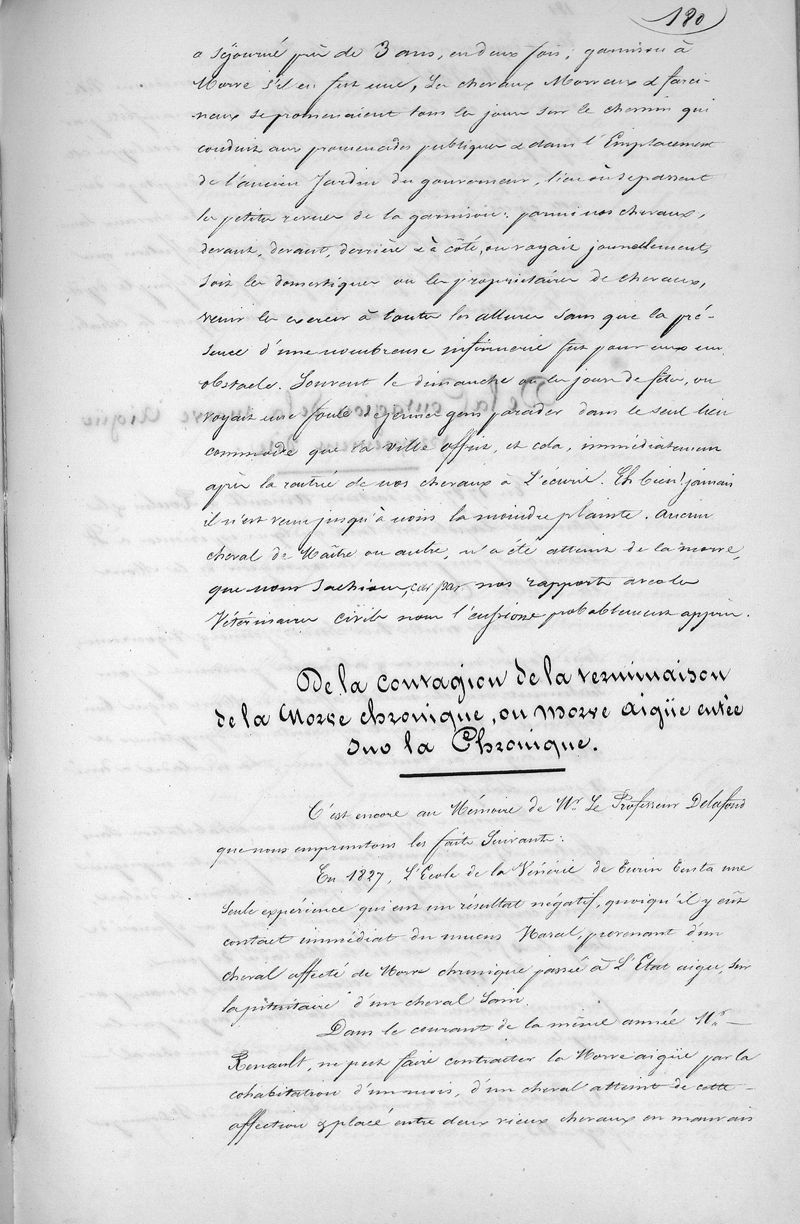 190
a séjourné près de 3 ans, en deux fois; garnison à
Morve s'il en fut une, Les chevaux Morveux & farci-
neux se promenaient tous les jours sur le chemin qui
conduit aux promenades publiques & dans l'Emplacement
de l'ancien Jardin du gouverneur, lieu où se passent
les petites revues de la garnison: parmi nos chevaux,
devant, devant, derrière & à côté, on voyait journellement,
soit les domestiques ou les propriétaires de chevaux,
venir les exercer à toutes les allures sans que la pré-
sence d'une nombreuse infirmerie fut pour eux un
obstacle. Souvent le dimanche ou les jours de fêtes, on
voyait une foule de jeunes gens parader dans le seul lieu
commode que la ville offrit, et cela, immédiatement
après la rentrée de nos chevaux à L'écurie. Eh bien! jamais
il n'est venu jusqu'à nous la moindre plainte. Aucun
cheval de Maître ou autre, n'a été atteint de la morve,
que nous sachions, car par nos rapports avec les
Vétérinaires civils nous l'eussions probablement appris.
De la contagion de la terminaison
de la Morve chronique, ou Morve aigüe entée
sur la Chronique.
C'est encore au Mémoire de Mr. Le Professeur Delafond
que nous empruntons les faits Suivants:
En 1827, L'Ecole de la Vénérie de Turin tenta une
seule expérience qui eut un résultat négatif, quoiqu'il y eût
contact immédiat du mucus Nasal, provenant d'un
cheval affecté de Morve chronique passée à L'Etat aigu, sur
la pituitaire d'un cheval Sain.
Dans le courant de la même année Mr.
Renault, ne put faire contracter la Morve aigüe par la
cohabitation d'un mois, d'un cheval atteint de cette
affection & placé entre deux vieux chevaux en mauvais